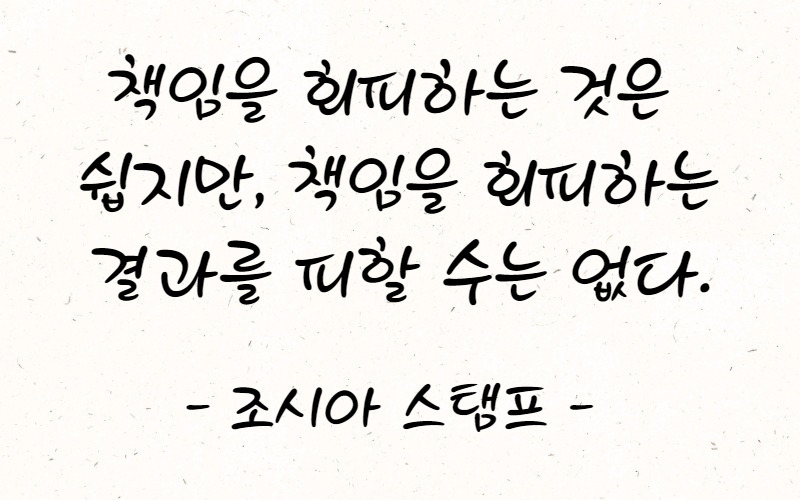 책임을 회피하는 것은
쉽지만, 책임을 회피하는
결과를 피할 수는 없다.
- 조시아 스탬프 -